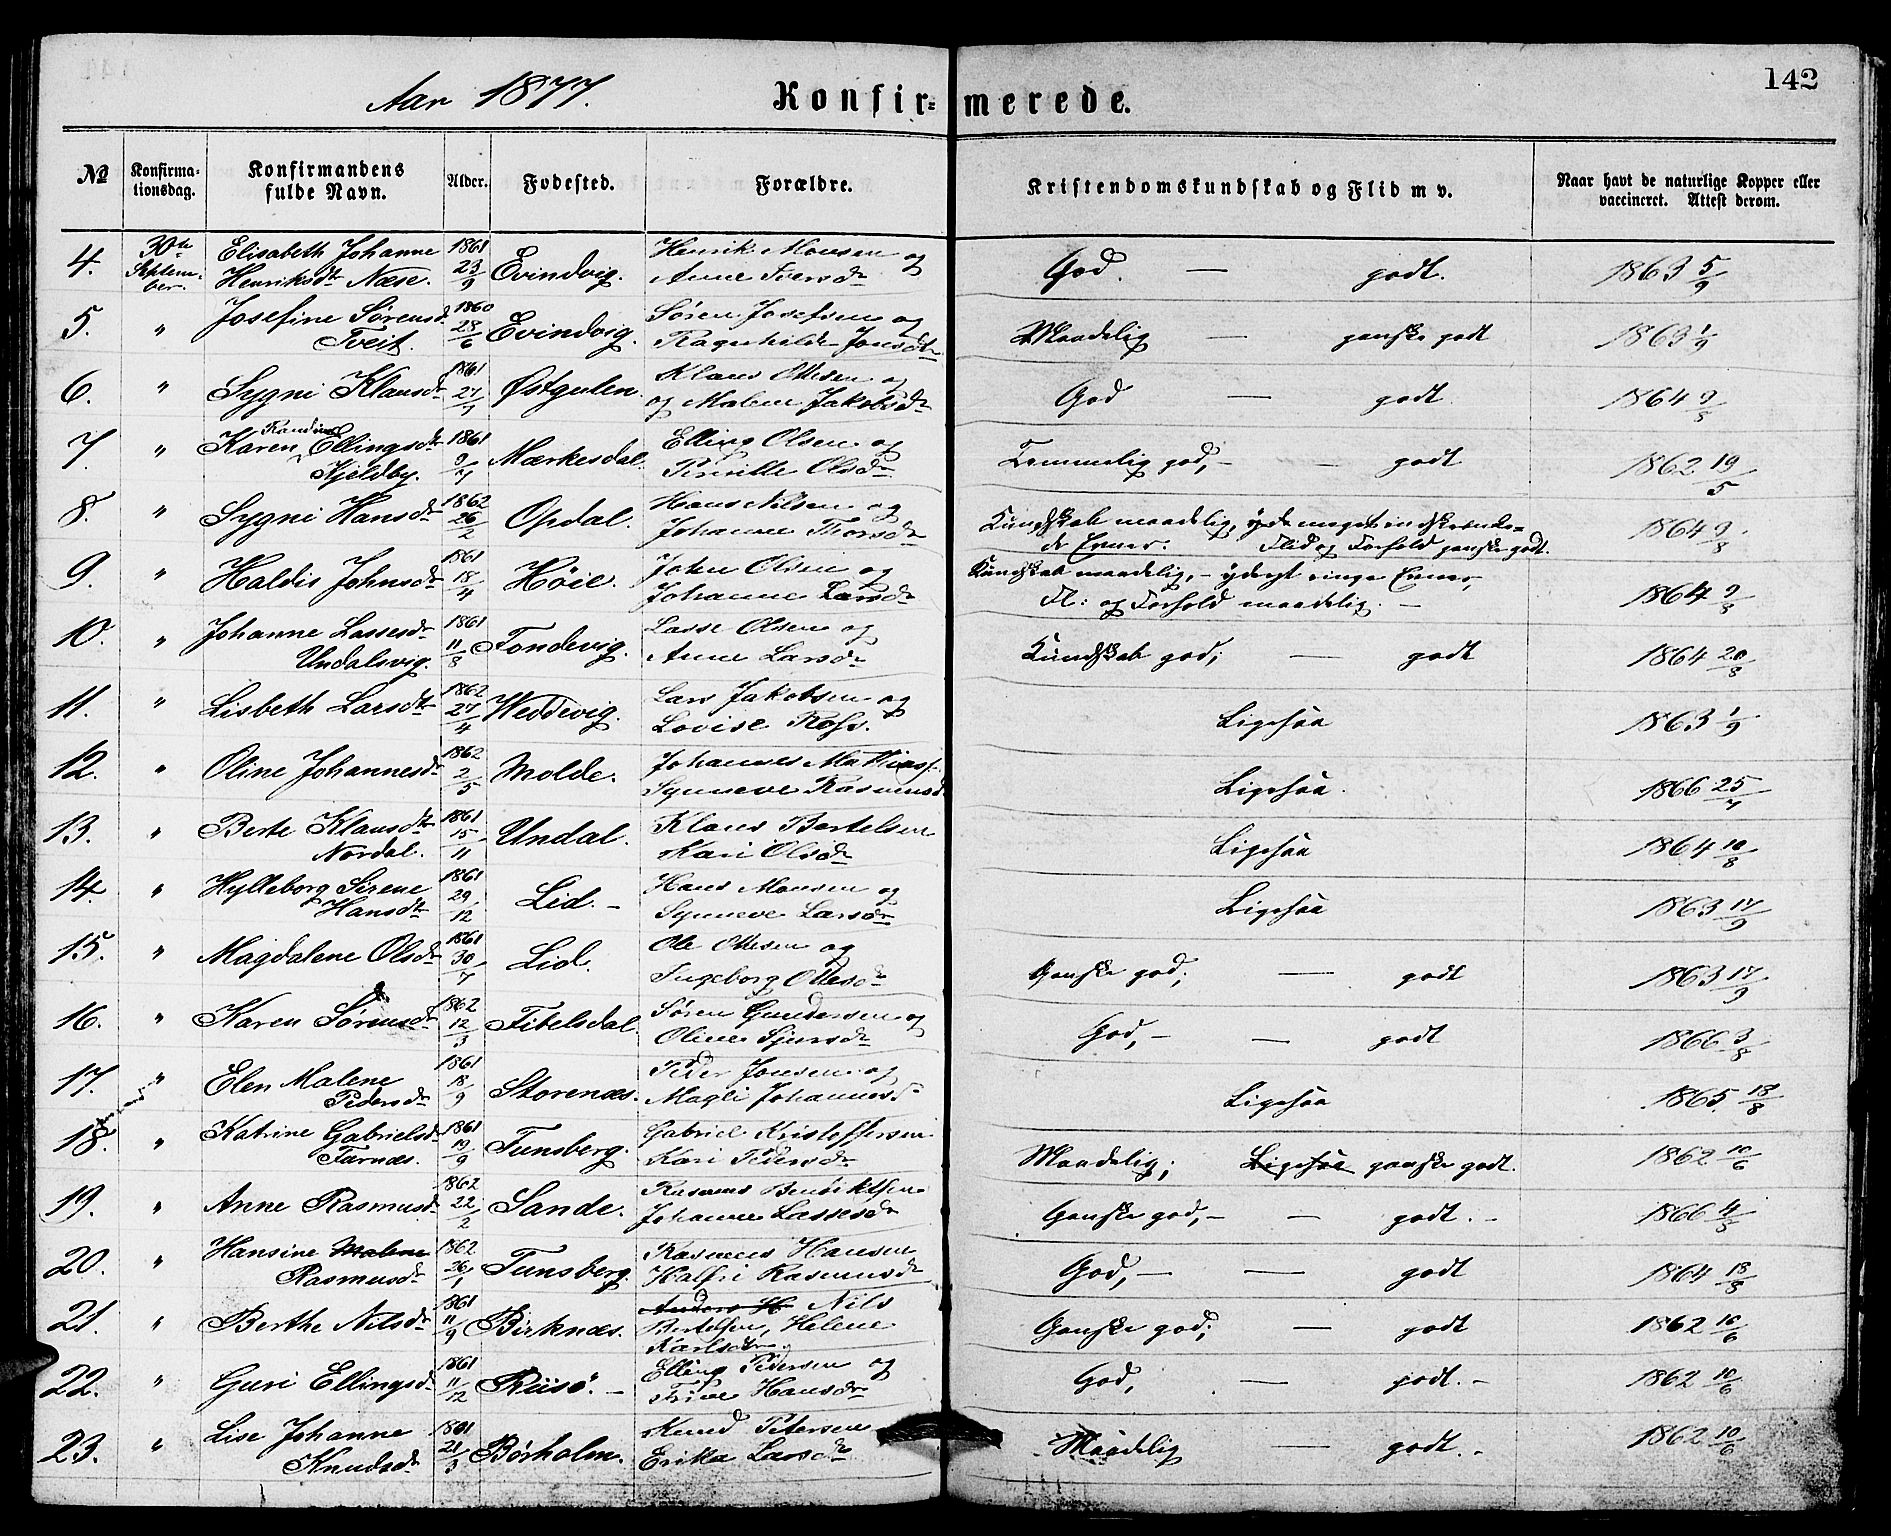 142
Aar 1877. Konfirmerede.
No Konfirmationsdag. Konfirmandens fulde Navn. Alder. Fodested. Forældre. Kristendomskundskab og Flid m v. Naar havt de naturlige Kopper eller vaccineret. Attest derom.
4. 30te September. Elisabeth Johanne Henriksdtr Næse. 1861 23/9 Evindvig. Henrik Monsen og Anne Iversdtr God. — godt. 1863 5/9
5. " Josefine Sørensd. Tveit. 1860 28/6 Evindvig. Søren Josefsen og Ragnhilde Jonsdtr Maadelig — ganske godt 1863 1/9
6. " Sygni Klausdtr 1861 27/7 Østgulen. Klaus Ottesen og og Malene Jakobsdtr God — godt. 1864 9/8
7. " Karen Randine Ellingsdtr Kjeldby. 1861 9/7 Mærkesdal. Elling Olsen og Pernille Olsdtr Temmelig god, — — godt 1862 19/5
8. " Sygni Hansdtr 1862 26/2 Opdal. Hans Nilsen og Johanne Thorsdtr Kundskab maadelig, yde meget indskrænkede Evner. Flid og Forhold ganske godt. 1864 9/8
9. " Haldis Johnsdtr 1861 18/4 Høie. John Olsen og Johanne Larsdtr Kundskab maadelig, — yderst ringe Evner, Fl: og Forhold maadelig. — 1864 9/8
10. " Johanne Lassesdtr Undalsvig. 1861 11/8 Tondevig. Lasse Olsen og Anne Larsdtr Kundskab god; — godt 1864 20/8
11. " Lisbeth Larsdtr 1862 27/4 Weddevig. Lars Jakobsen og Lovise Rasm. Ligesaa 1863 1/9
12. " Oline Johannesdtr 1862 2/5 Molde. Johannes Mathiass. Synneve Rasmusd. Ligesaa. 1866 25/7
13. " Berte Klausdtr Nordal. 1861 15/11 Undal. Klaus Bertelsen Kari Olsdtr Ligesaa 1864 10/8
14. " Hylleborg Sirene Hansdtr 1861 29/12 Lid. — Hans Monsen og Synneve Larsdtr Ligesaa 1863 17/9
15. " Magdalene Olsdtr 1861 30/7 Lid. Ole Ottesen og Ingeborg Ottesdtr Ganske god; — godt 1863 17/9
16. " Karen Sørensdtr 1862 12/3 Fibelsdal. Søren Gundersen og Oline Sjursdtr God, — — godt 1866 3/8
17. " Elen Malene Pedersdtr 1861 18/9 Storenæs. Peder Jonsen og Magli Johannesdtr Ligesaa 1865. 18/8
18. " Katrine Gabrielsdtr Farnæs. 1861 19/9 Tunsberg. Gabriel Kristoffersen Kari Pedersdtr Maadelig; Ligesaa ganske godt. 1862 10/6
19. " Anne Rasmusdtr 1862 22/2 Sande. Rasmus Bendiktsen Johanne Lassesdtr Ganske god, — — godt. — 1866 4/8
20. " Hansine Malene Rasmusdtr 1862 26/1 Tunsberg. Rasmus Hansen Halfri Rasmusdtr God, — — godt 1864 18/8
21. " Berthe Nilsdtr 1861 11/9 Birknæs. Anders H Nils Bertelsen, Helene Karlsdtr Ganske god; — godt 1862 10/6
22. " Guri Ellingsdtr 1861 11/12 Riisø. — Elling Pedersen og Trine Hansdtr God, — godt. — 1862 10/6
23. " Lise Johanne Knudsdtr 1861 21/3 Børholm. Knud Petersen Erika Larsdtr Maadelig — godt. — 1862 10/6